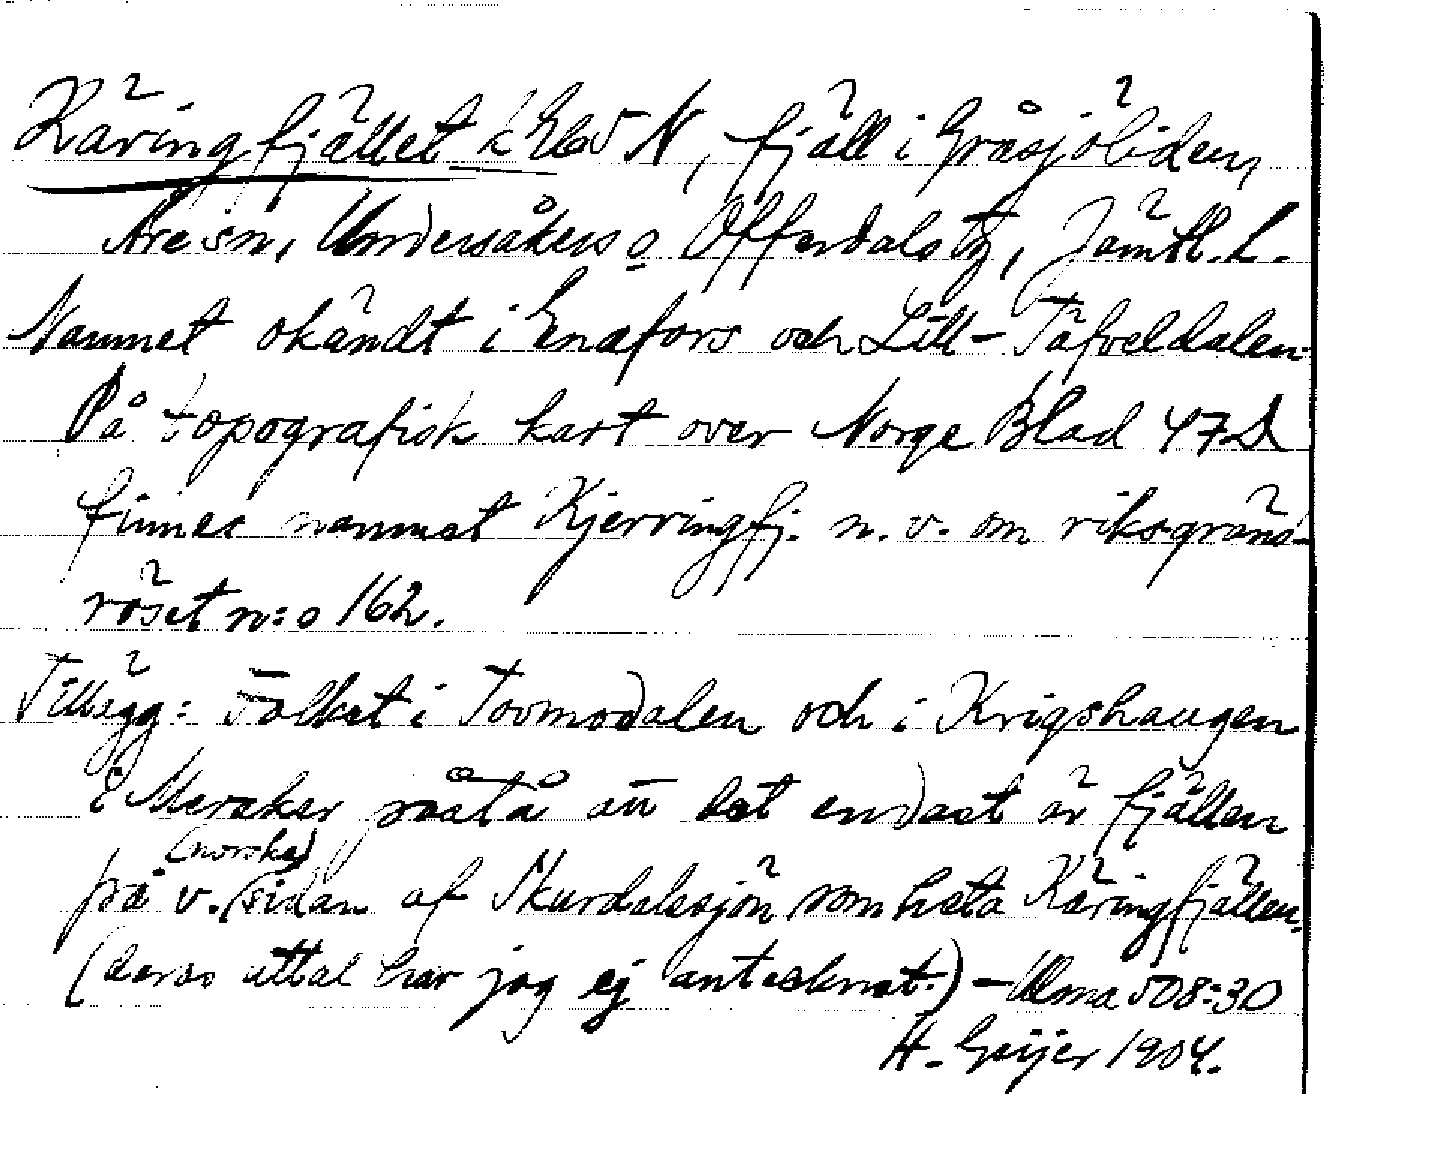 Käringfjället k Ebl5 N, fjäll i Gråsjöliden,
Åre sn, Undersåkers o Offerdals tg, Jämtl. l.
Namnet okändt i Enafors och Lill-Täfveldalen.
På topografisk kart over Norge Blad 47D
finnes namnet Kjerringfj. n. v. om riksgräns-
röset n:o 162.
Tillägg: Folket i Tovmodalen och i Krigshaugen
i Meraker påstå att det endast är fjällen
på v. (norska) sidan af Skurdalssjön som heta Käringfjällen.
(deras uttal har jag ej antecknat.) – Ulma 508:30
H. Geijer 1904.